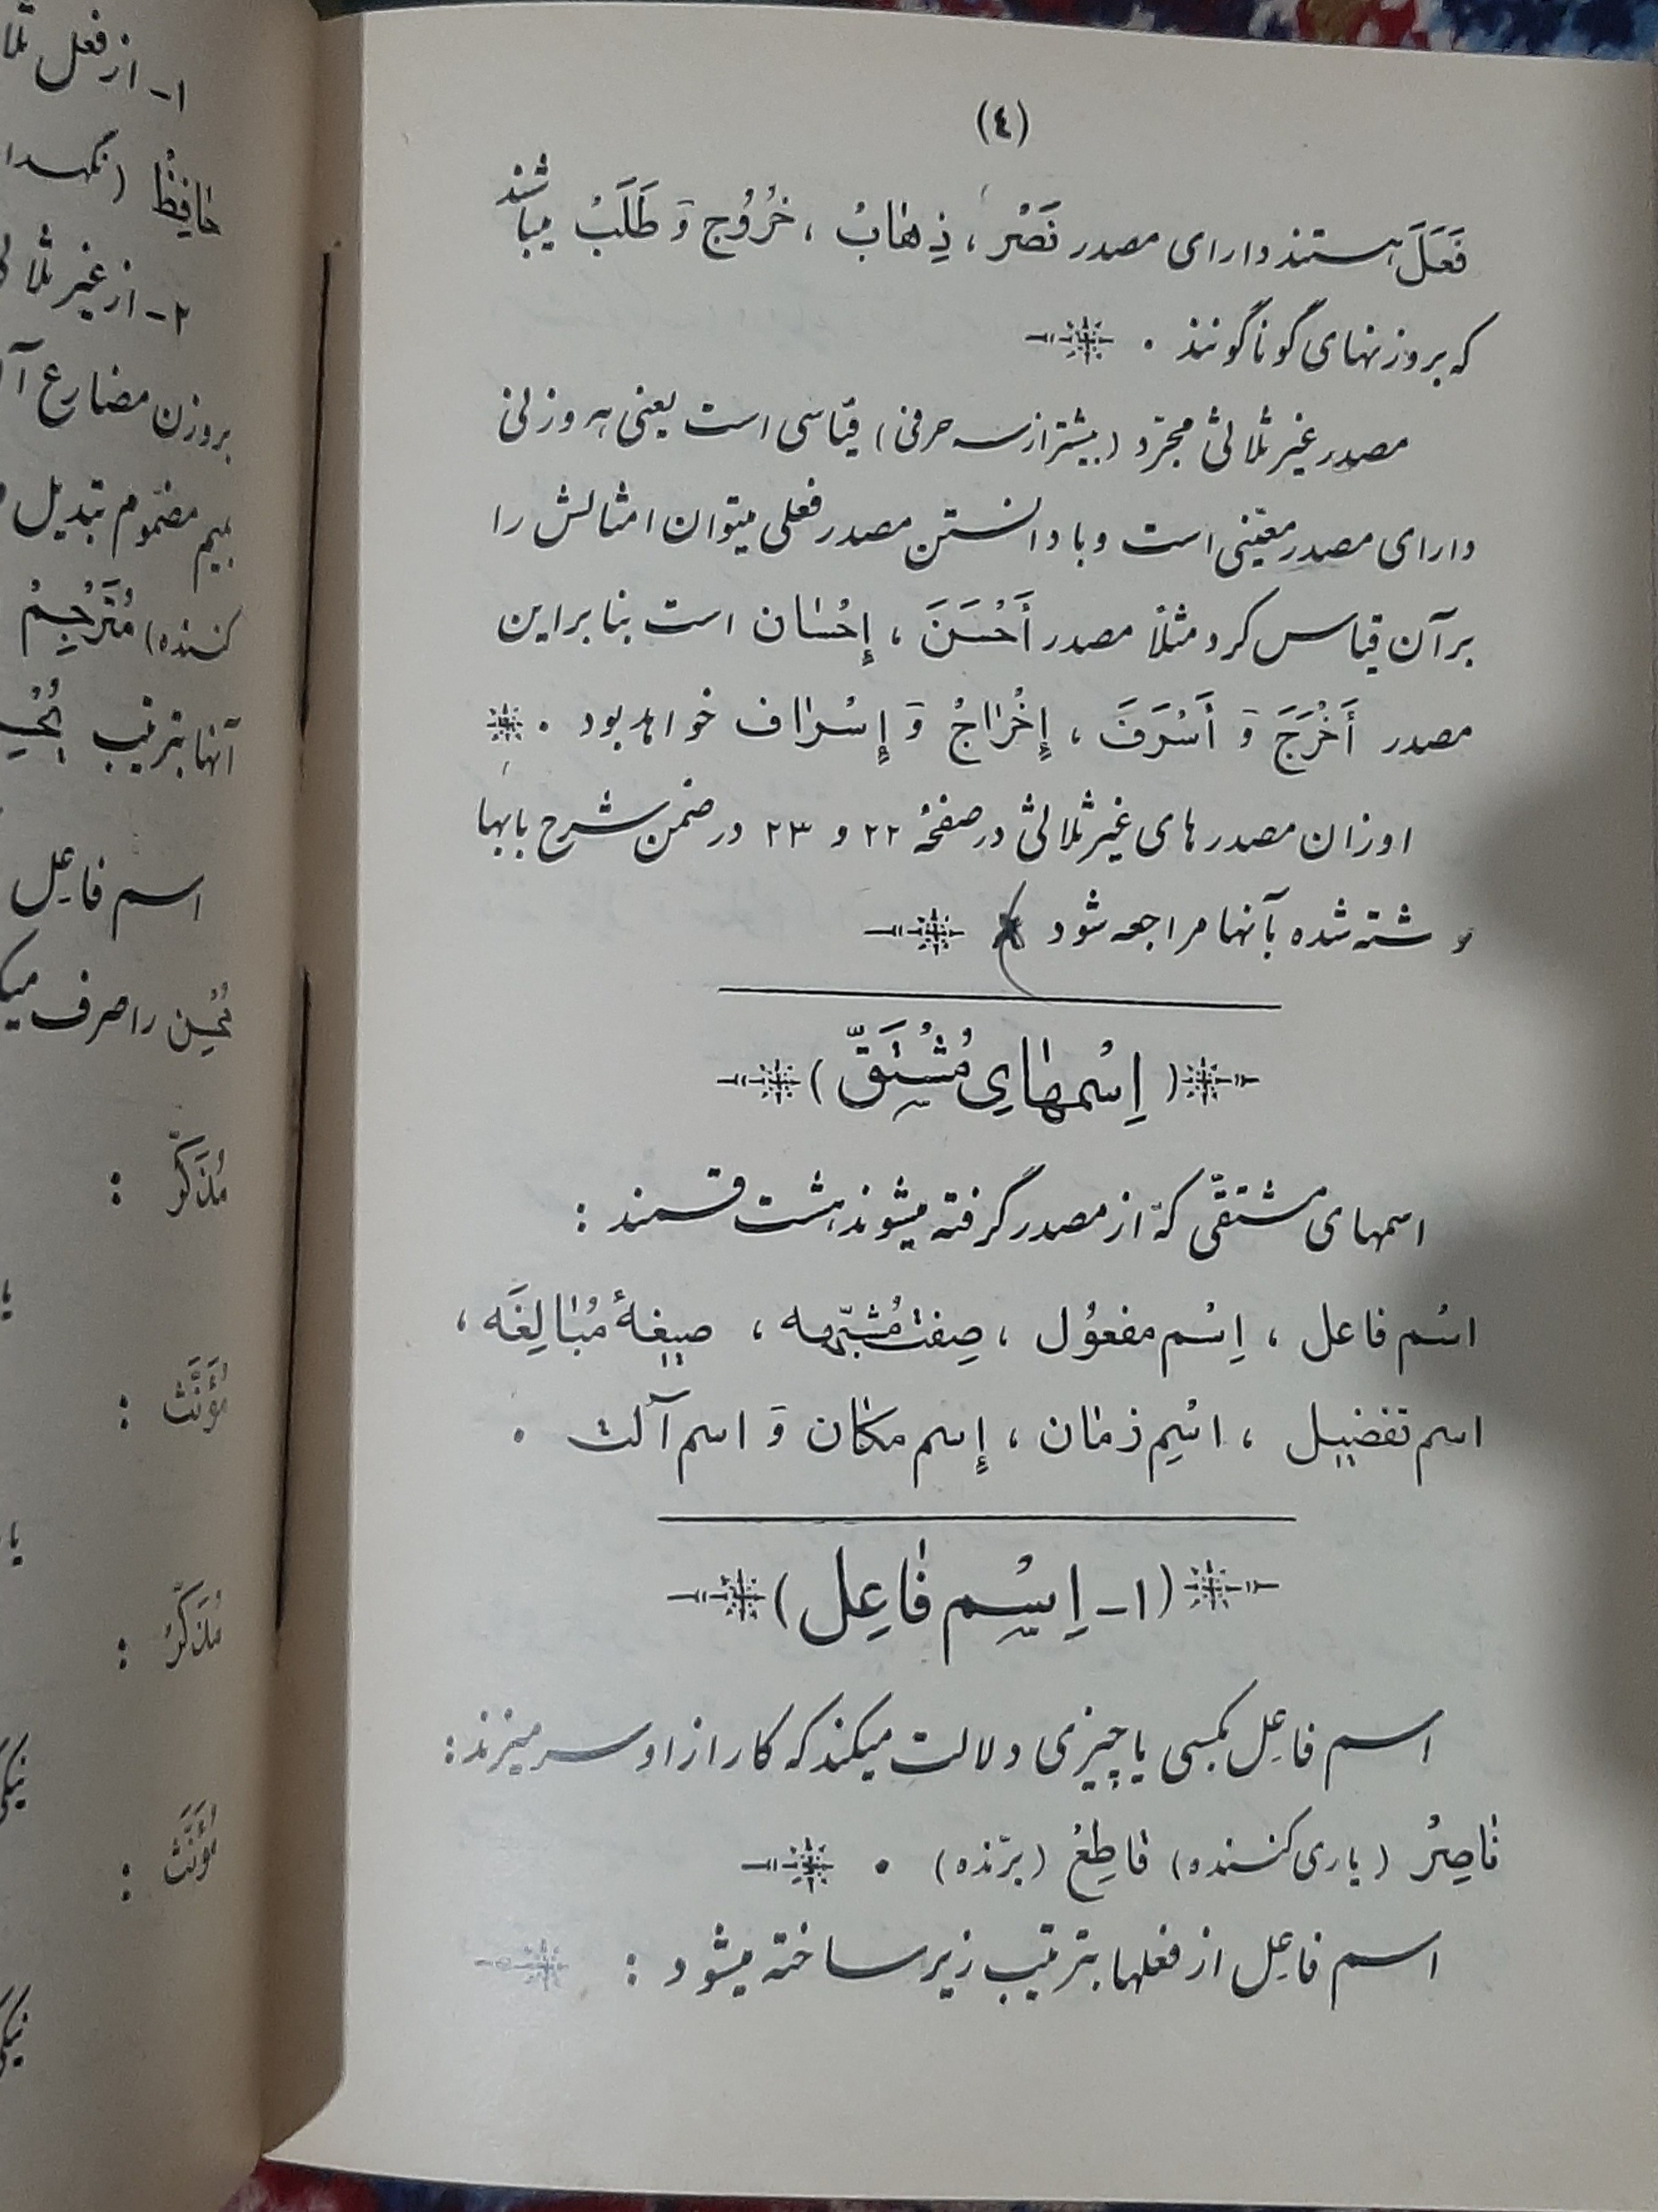 (٤)
فَعَلَ هستند دارای مصدر نَصْر ، ذِهٰابْ ، خُرُوج وَ طَلَبْ میباشند
که بروزنهای گوناگونند .
مصدر غیر ثلاثی مجرّد (بیشتر از سه حرفی) قیاسی است یعنی هر وزنی
دارای مصدر معیّنی است و با دانستن مصدر فعلی میتوان امثالش را
بر آن قیاس کرد مثلاً مصدر أَحْسَنَ ، إِحْسٰان است بنابراین
مصدر أَخْرَجَ وَ أَسْرَفَ ، إِخْرٰاجْ وَ إِسْرٰاف خواهد بود .
اوزان مصدرهای غیر ثلاثی در صفحهٔ ۲۲ و ۲۳ در ضمن شرح بابها
شته شده بآنها مراجعه شود
(اِسْمهٰایِ مُشْتَقّ)
اسمهای مشتقّی که از مصدر گرفته میشوند هشت قسمند :
اسْم فاعل ، اِسْم مفعوُل ، صِفت مُشبّهه ، صیغهٔ مُبٰالِغَه ،
اسم تفضیل ، اسْمِ زمٰان ، إِسم مکٰان وَ اسم آلت .
(۱ـ اِسْمِ فٰاعِل)
اسم فاعِل بکسی یا چیزی دلالت میکند که کار از او سر میزند :
نٰاصِرْ (یاری کننده) قٰاطِعْ (برّنده) .
اسم فاعِل از فعلها بترتیب زیر ساخته میشود :
۱ـ از فعل
حٰافِظْ
۲ـ از غیر
بروزن مضارع
بمیم مضموم تبدیل
کننده) مُتَرْجِمْ
آنها بترتیب
اسم فاعِل
مُحْسِن را صرف
مُذَکَّر :
مُؤَنَّث :
مُذَکَّر :
مُؤَنَّث :